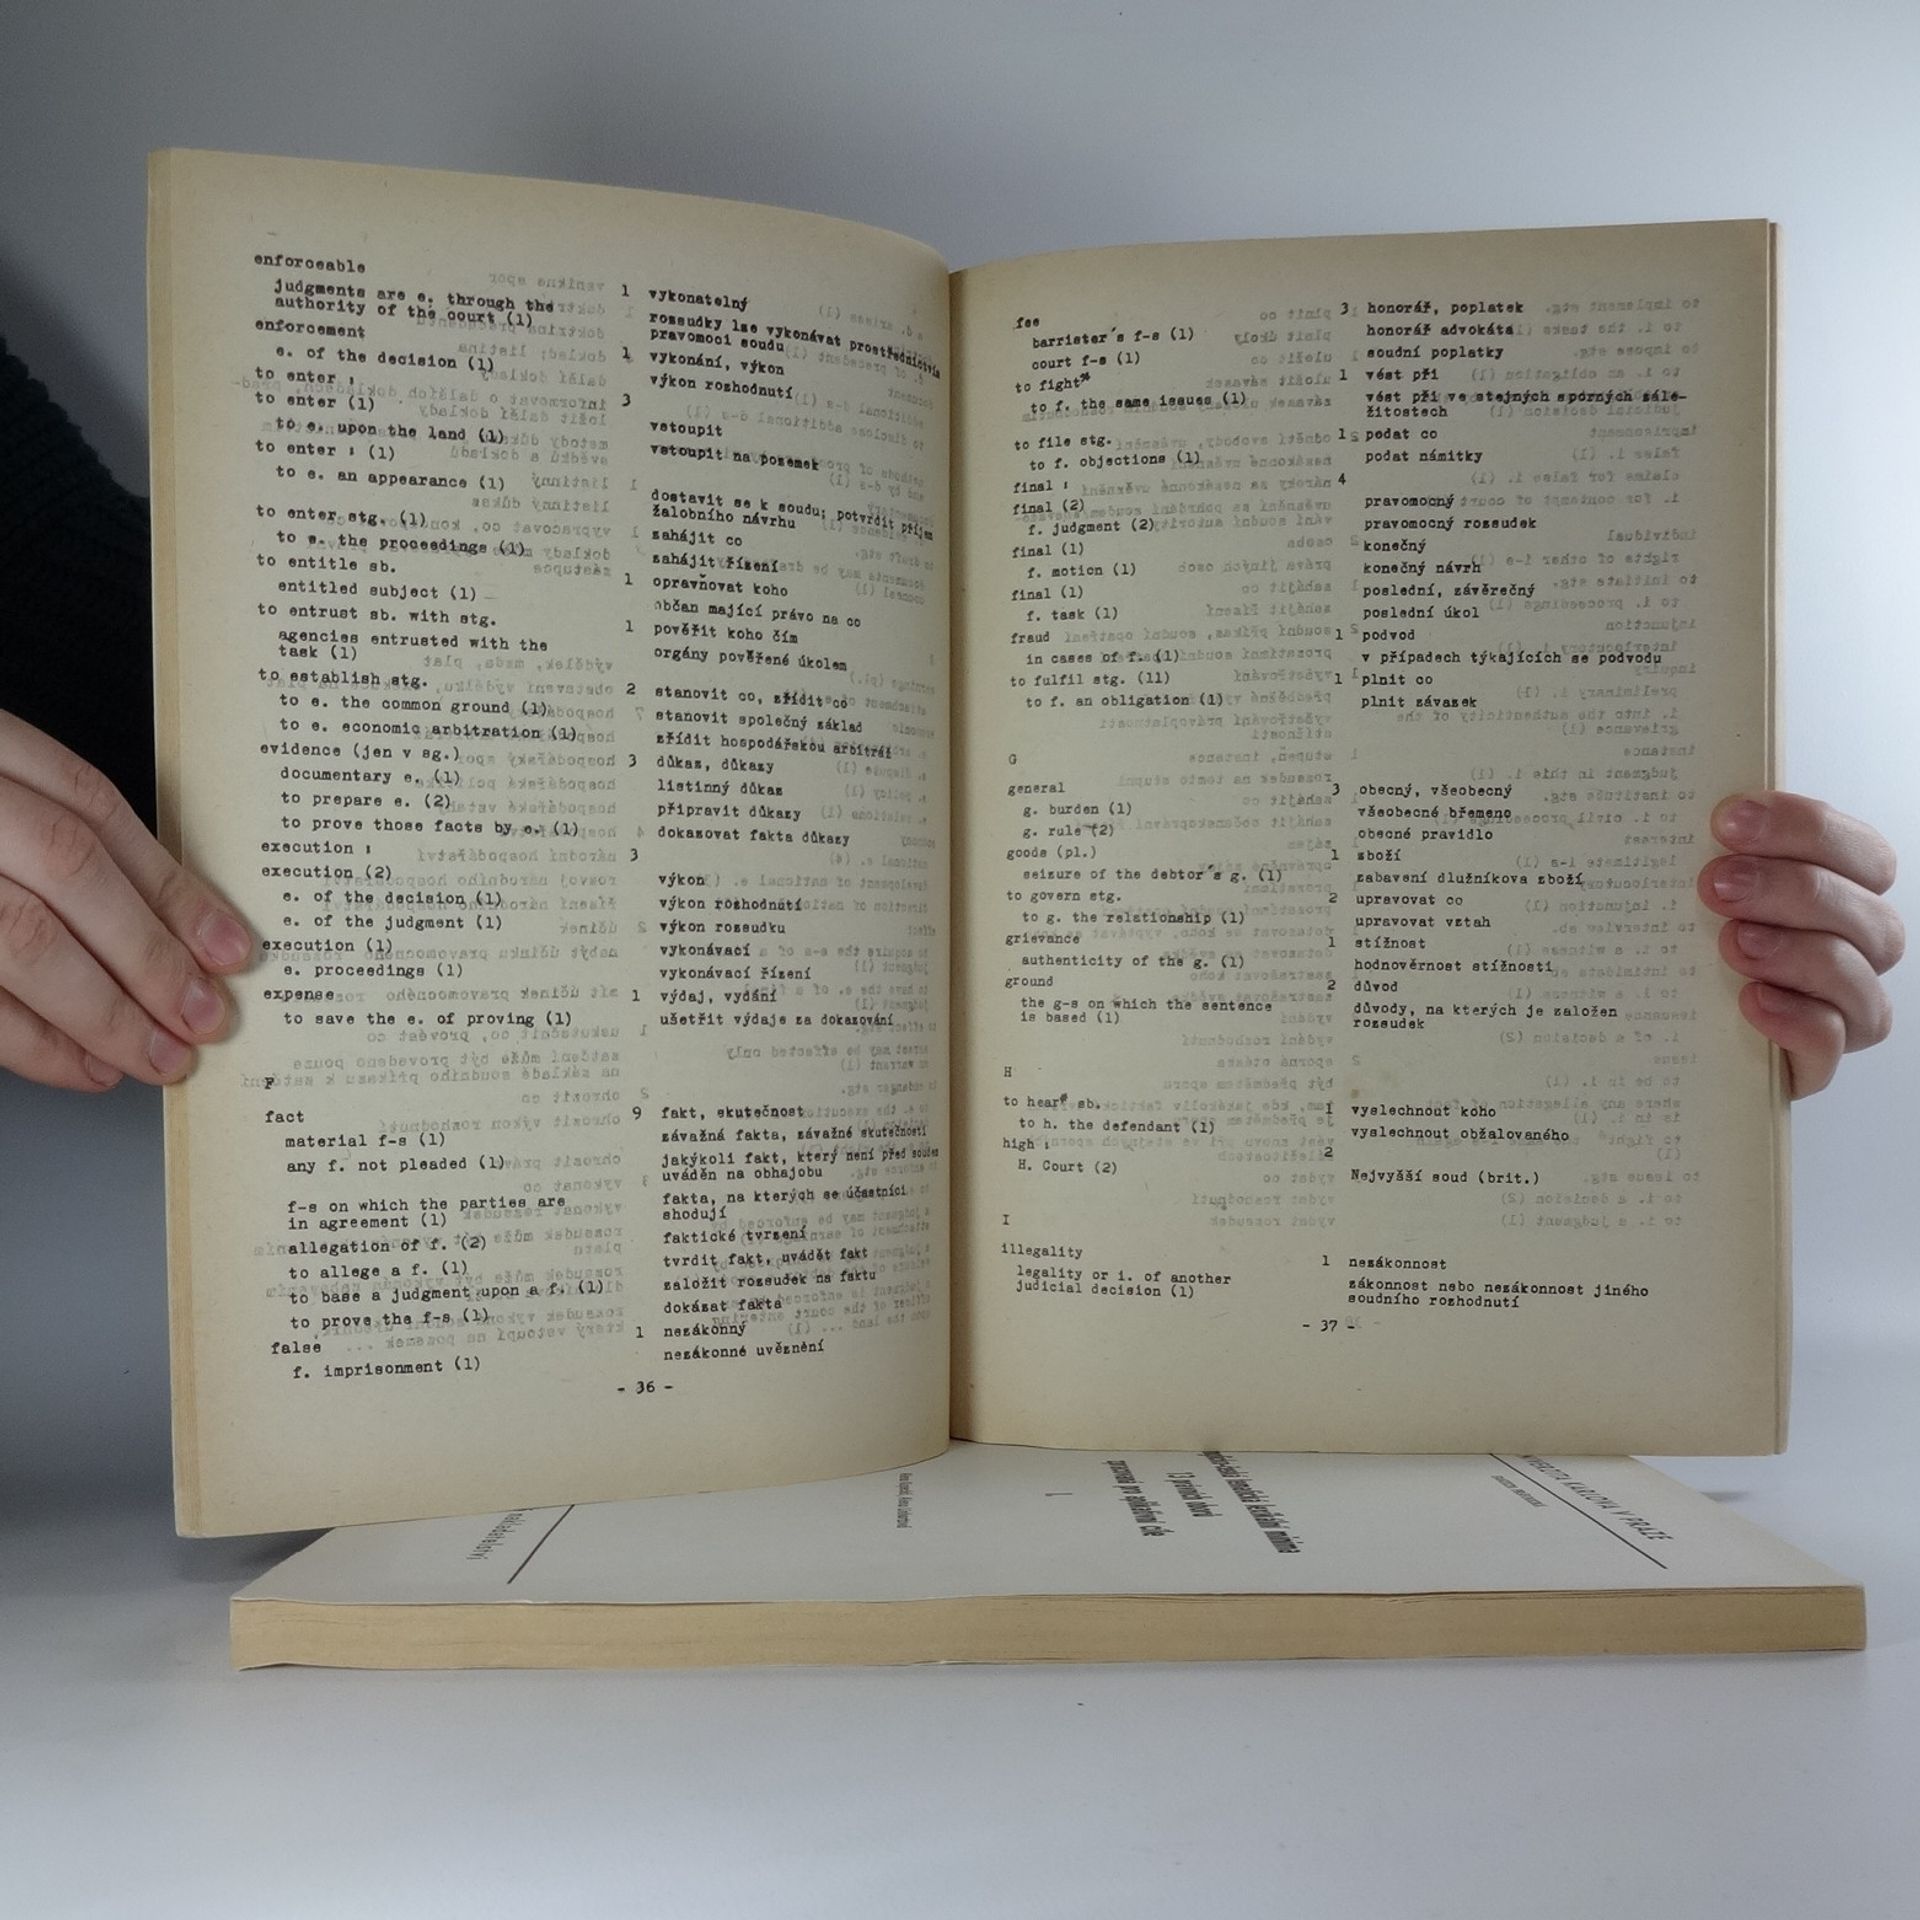 enforceable 1 vykonatelný
judgments are e. through the
authority of the court (1)
rozsudky lze vykonávat prostřednictvím
pravomoci soudu
enforcement 1 vykonání, výkon
e. of the decision (1) výkon rozhodnutí
to enter : 3
to enter (1) vstoupit
to e. upon the land (1) vstoupit na pozemek
to enter : (1)
to e. an appearance (1) dostavit se k soudu; potvrdit příjem
žalobního návrhu
to enter stg. (1) zahájit co
to e. the proceedings (1) zahájit řízení
to entitle sb. 1 opravňovat koho
entitled subject (1) občan mající právo na co
to entrust sb. with stg. 1 pověřit koho čím
agencies entrusted with the
task (1)
orgány pověřené úkolem
to establish stg. 2 stanovit co, zřídit co
to e. the common ground (1) stanovit společný základ
to e. economic arbitration (1) zřídit hospodářskou arbitráž
evidence (jen v sg.) 3 důkaz, důkazy
documentary e. (1) listinný důkaz
to prepare e. (2) připravit důkazy
to prove those facts by e. (1) dokazovat fakta důkazy
execution : 3
execution (2) výkon
e. of the decision (1) výkon rozhodnutí
e. of the judgment (1) výkon rozsudku
execution (1) vykonávací
e. proceedings (1) vykonávací řízení
expense 1 výdaj, vydání
to save the e. of proving (1) ušetřit výdaje za dokazování
F
fact 9 fakt, skutečnost
material f-s (1) závažná fakta, závažné skutečnosti
any f. not pleaded (1) jakýkoli fakt, který není před soudem
uváděn na obhajobu
f-s on which the parties are
in agreement (1)
fakta, na kterých se účastníci
shodují
allegation of f. (2) faktické tvrzení
to allege a f. (1) tvrdit fakt, uvádět fakt
to base a judgment upon a f. (1) založit rozsudek na faktu
to prove the f-s (1) dokázat fakta
false 1 nezákonný
f. imprisonment (1) nezákonné uvěznění
- 36 -
fee 3 honorář, poplatek
barrister's f-s (1) honorář advokáta
court f-s (1) soudní poplatky
to fight* 1 vést při
to f. the same issues (1) vést při ve stejných sporných zále-
žitostech
to file stg. 1 podat co
to f. objections (1) podat námitky
final : 4
final (2) pravomocný
f. judgment (2) pravomocný rozsudek
final (1) konečný
f. motion (1) konečný návrh
final (1) poslední, závěrečný
f. task (1) poslední úkol
fraud 1 podvod
in cases of f. (1) v případech týkajících se podvodu
to fulfil stg. (11) 1 plnit co
to f. an obligation (1) plnit závazek
G
general 3 obecný, všeobecný
g. burden (1) všeobecné břemeno
g. rule (2) obecné pravidlo
goods (pl.) 1 zboží
seizure of the debtor's g. (1) zabavení dlužníkova zboží
to govern stg. 2 upravovat co
to g. the relationship (1) upravovat vztah
grievance 1 stížnost
authenticity of the g. (1) hodnověrnost stížnosti
ground 2 důvod
the g-s on which the sentence
is based (1)
důvody, na kterých je založen
rozsudek
H
to hear* sb. 1 vyslechnout koho
to h. the defendant (1) vyslechnout obžalovaného
high : 2
H. Court (2) Nejvyšší soud (brit.)
I
illegality 1 nezákonnost
legality or i. of another
judicial decision (1)
zákonnost nebo nezákonnost jiného
soudního rozhodnutí
- 37 -
UNIVERZITA KARLOVA V PRAZE
13 právních oborů
I.